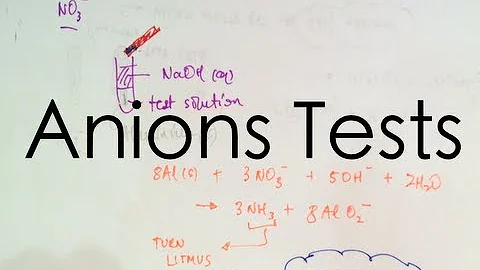 NO₃⁻
NaOH (aq)
test solution
Anions Tests
8Al(s) + 3NO₃⁻ + 5OH⁻ + 2H₂O
→ 3NH₃ + 8AlO₂⁻
TURN
LITMUS